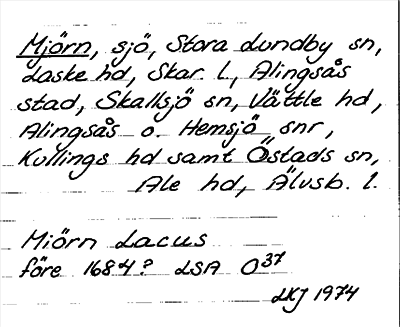 Mjörn, sjö, Stora Lundby sn,
Laske hd, Skar. l., Alingsås
stad, Skallsjö sn, Vättle hd,
Alingsås o. Hemsjö snr,
Kullings hd samt Östads sn,
Ale hd, Älvsb. l.
Miörn Lacus
före 1684? LSA O37
LKJ 1974